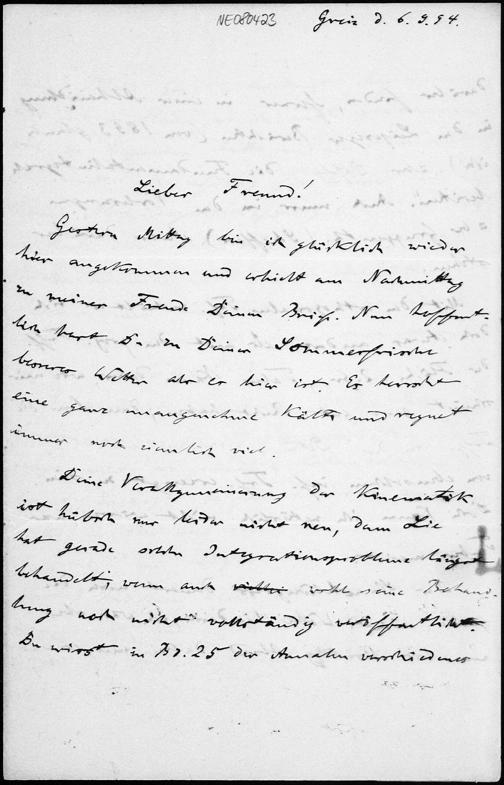 NE080423
Greiz d. 6. 9. 94.
Lieber Freund!
Gestern Mittag bin ich glücklich wieder
hier angekommen und erhielt am Nachmittag
zu meiner Freude Deinen Brief. Nun hoffent-
lich hast Du zu Deiner Sommerfrische
besseres Wetter als es hier ist. Es herrscht
eine ganz unangenehme Kälte und regnet
immer noch ziemlich viel.
Deine Verallgemeinerung der Kinematik
ist hübsch nur leider nicht neu, denn Lie
hat gerade solche Integrationsprobleme längst
behandelt, wenn auch wohl seine Behand-
lung noch nicht vollständig veröffentlicht.
Du wirst in Bd. 25 der Annalen verschiedenes